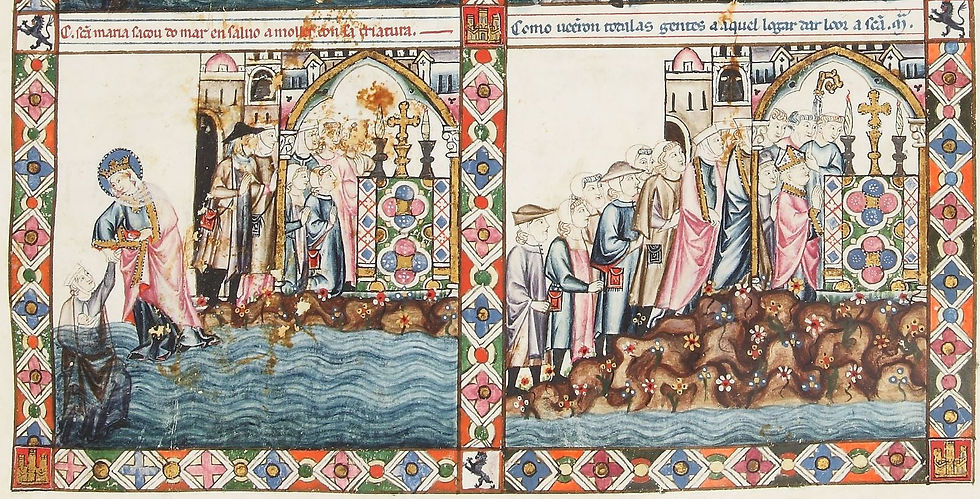 C. scã maria sacou do mar en saluo a moller con sa criatura.
Como ueẽron todalas gentes a aquel logar dar loor a scã.